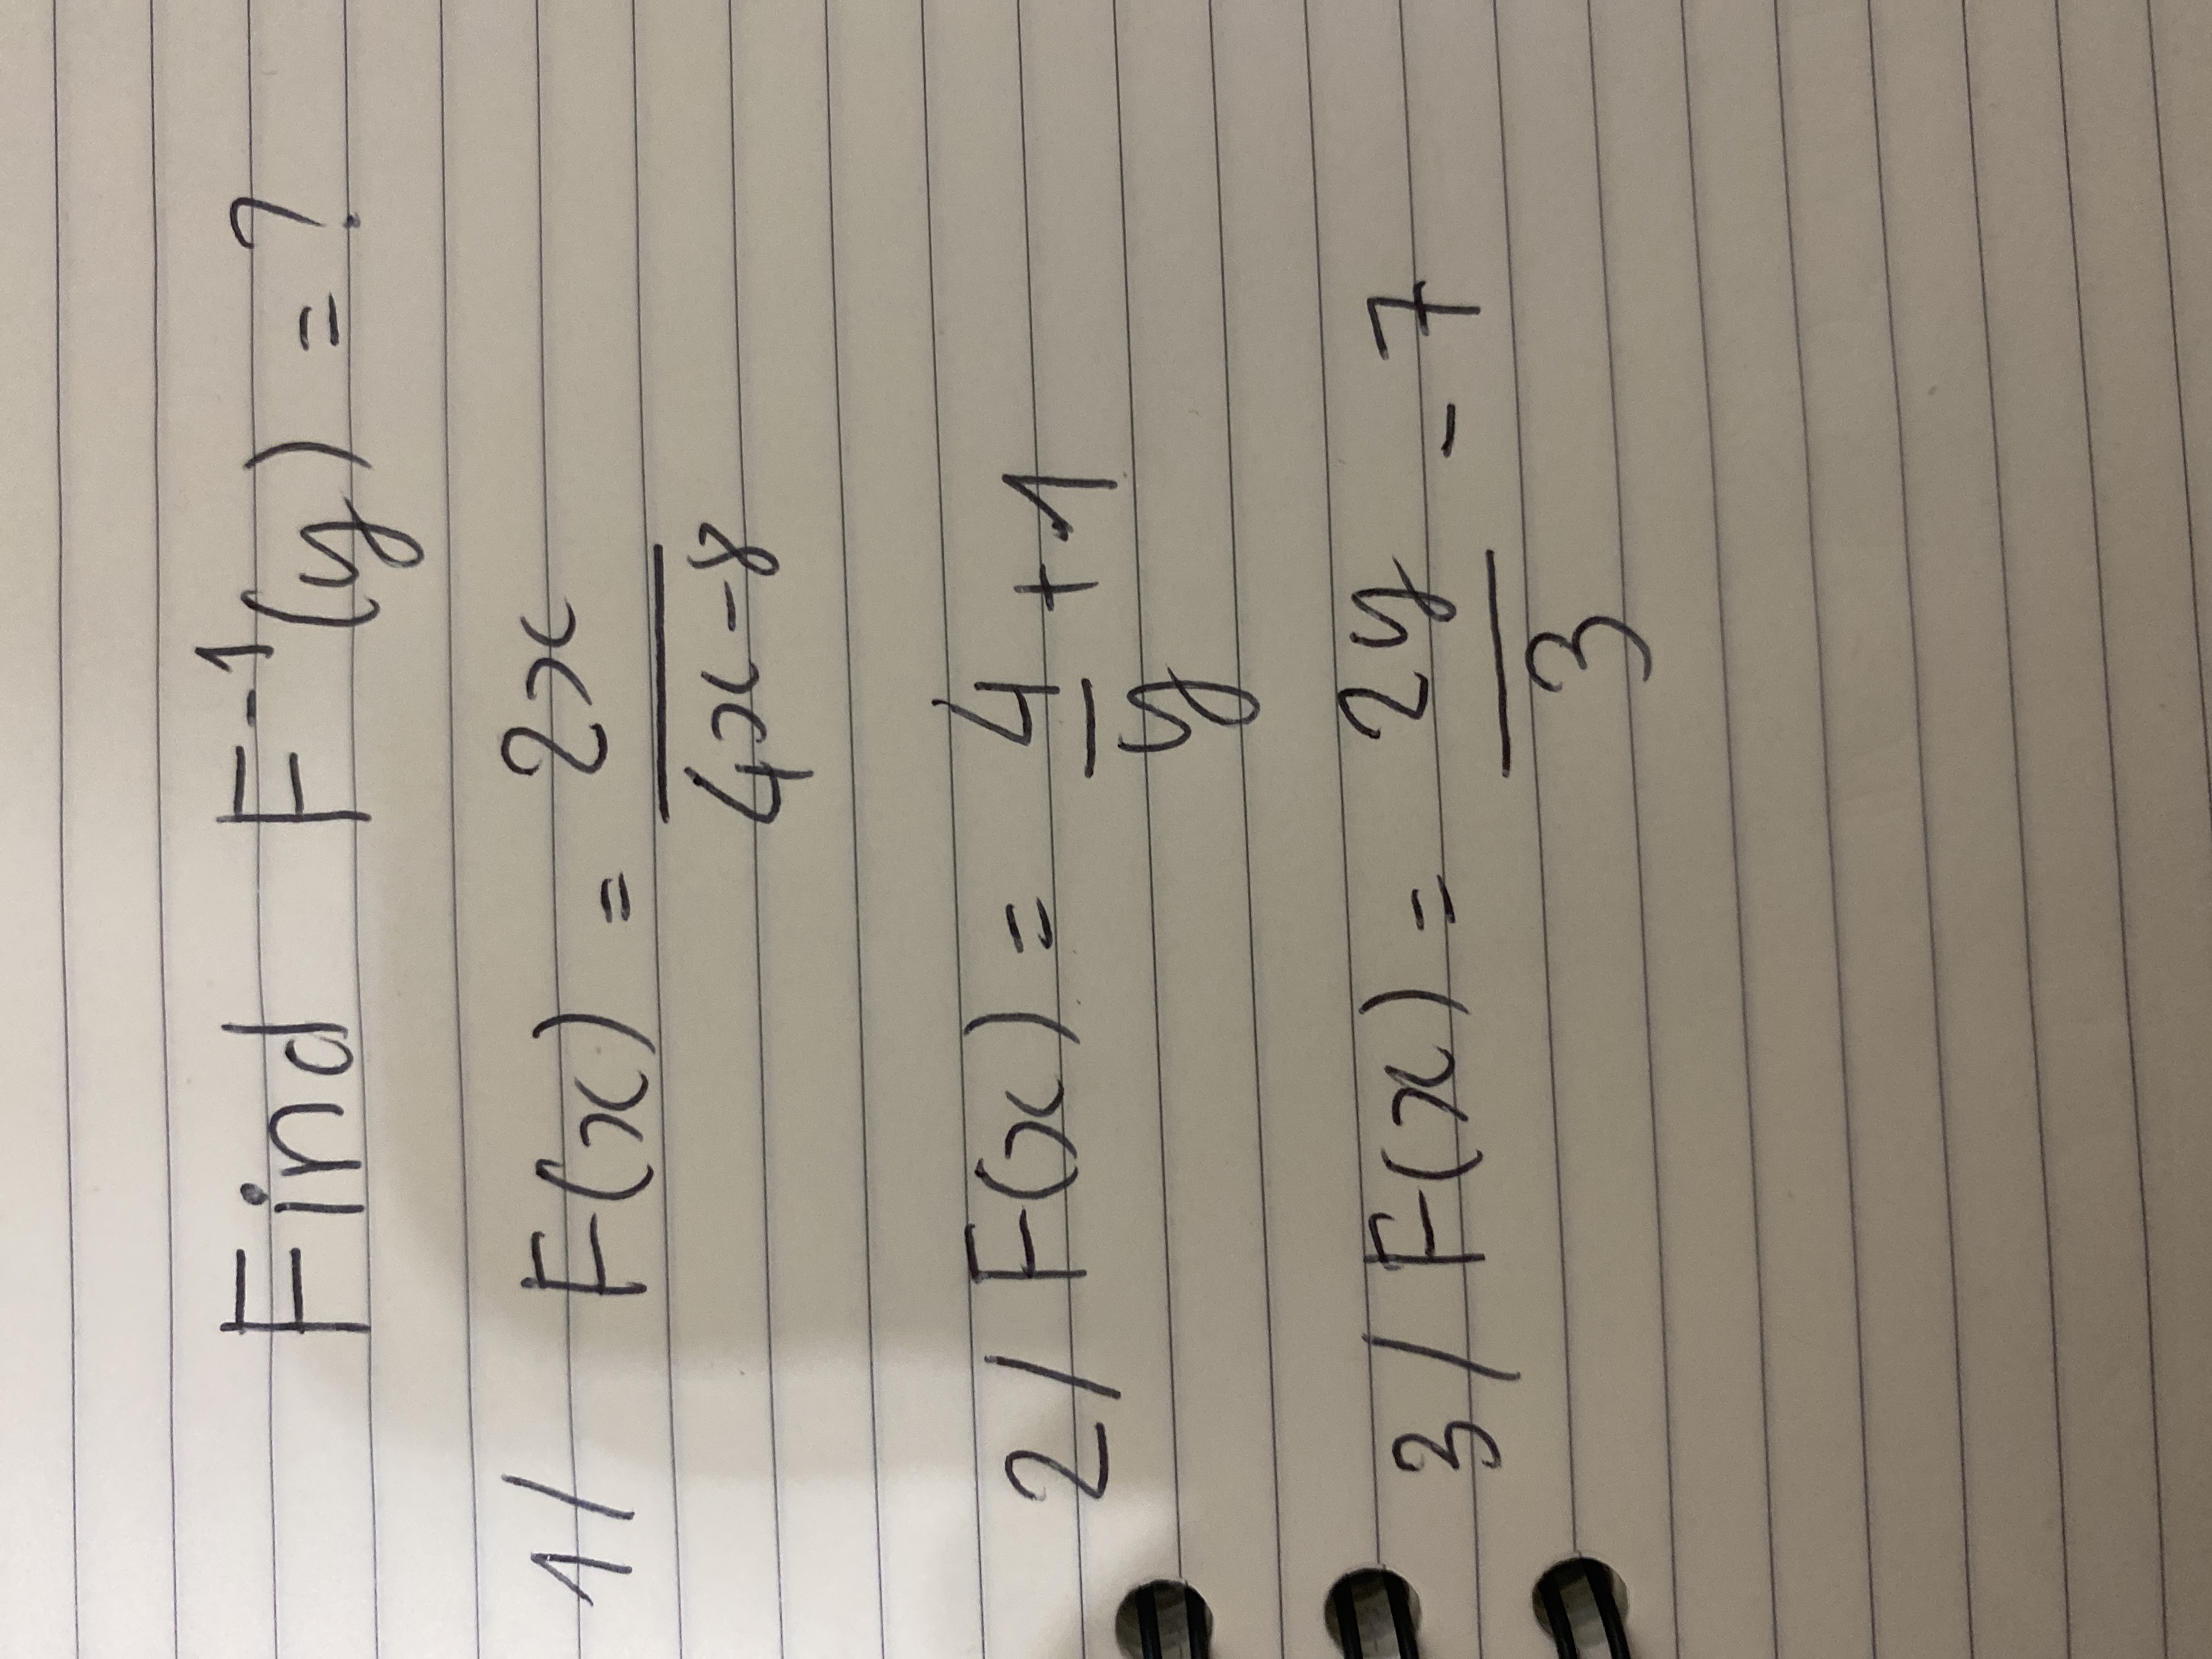 Find F⁻¹(y) = ?
1/ F(x) = 2x / 4x-8
2/ F(x) = 4/y + 1
3/ F(x) = 2y/3 - 7